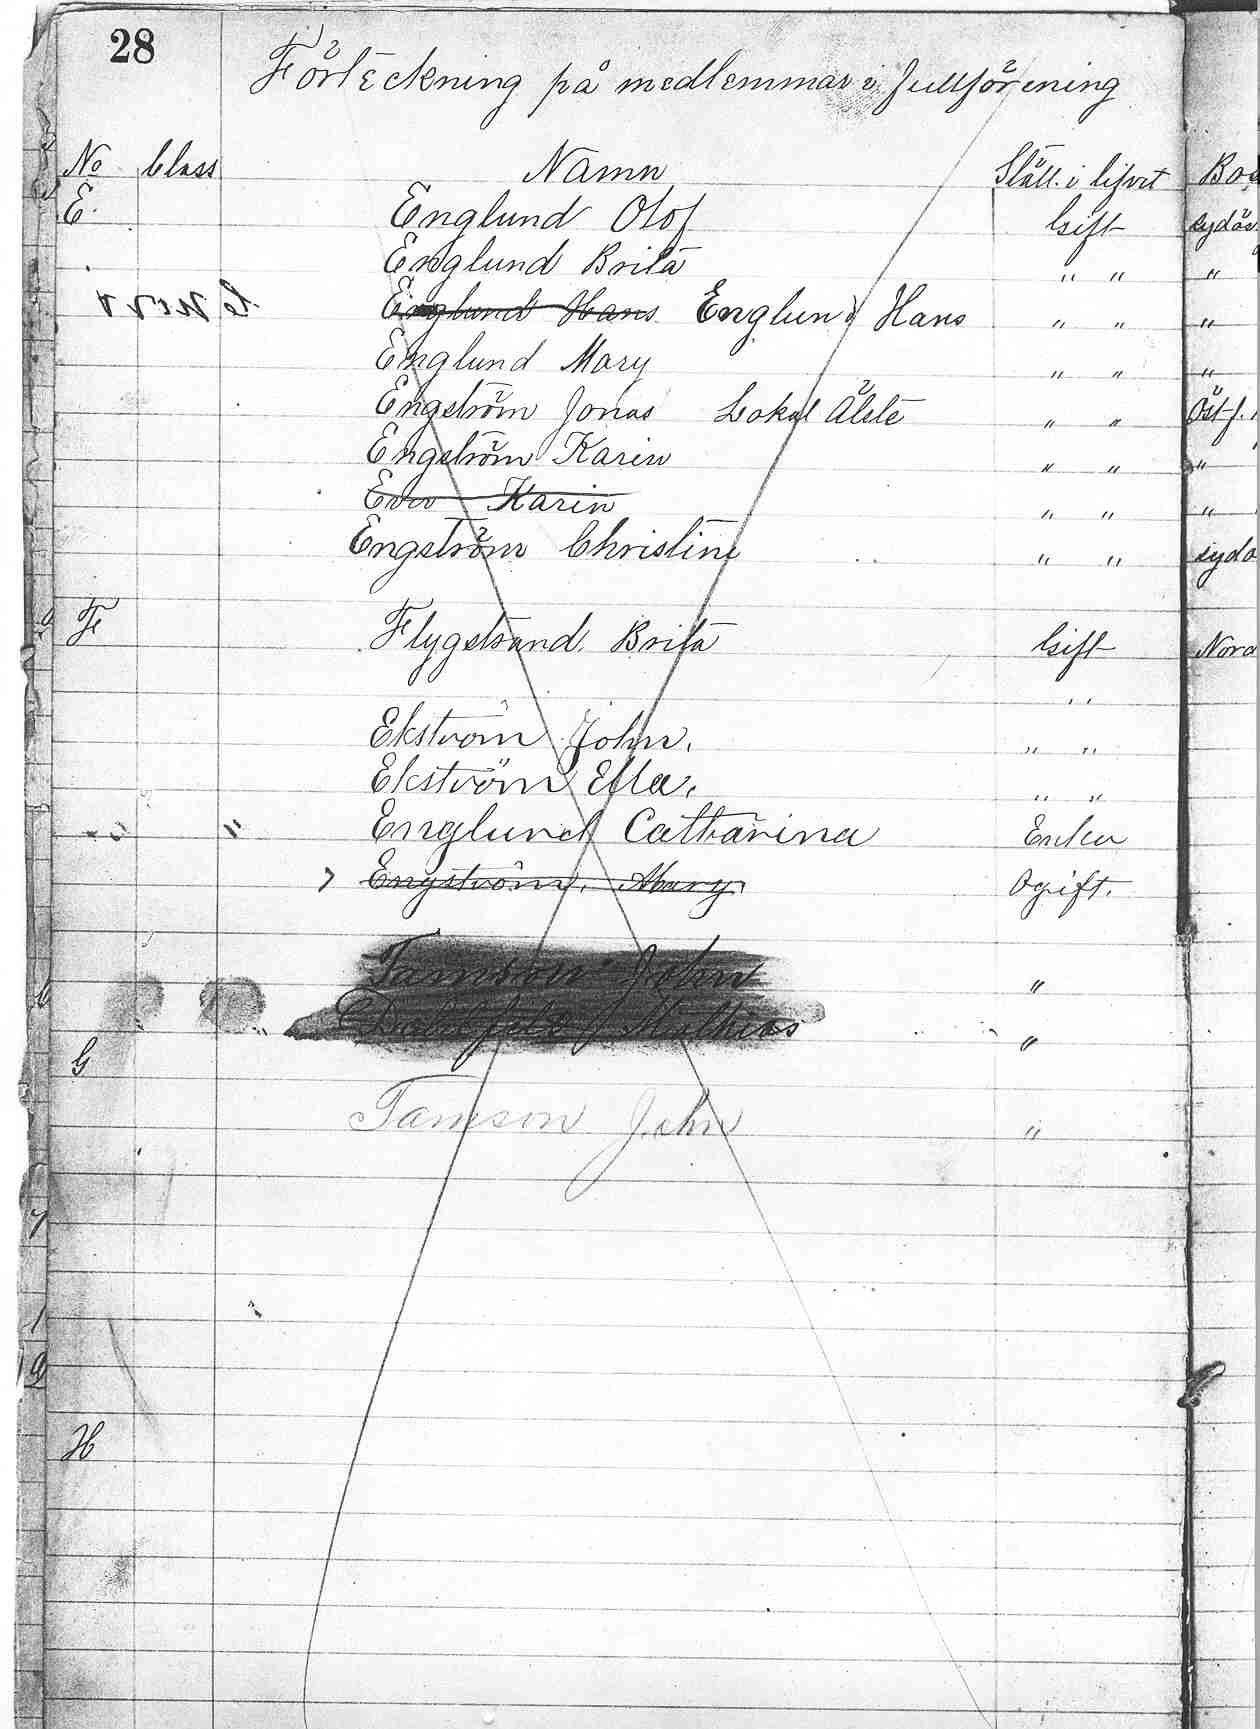 28
Förteckning på medlemmar i fullförening
No Class Namn Ställ. i lifvet
E. Englund Olof Gift
Englund Brita " "
Englund Hans Englund Hans " " "
Englund Mary " " "
Engström Jonas Lokal Älste " "
Engström Karin " " "
Karin " " "
Engström Christine " "
F Flygstrand. Brita Gift
"
Ekström John. " "
Ekström Ella. " "
" Englund Catharina Enka
Engström. Mary. Ogift.
Tamson John "
Mathias "
G
Tamson John "
H